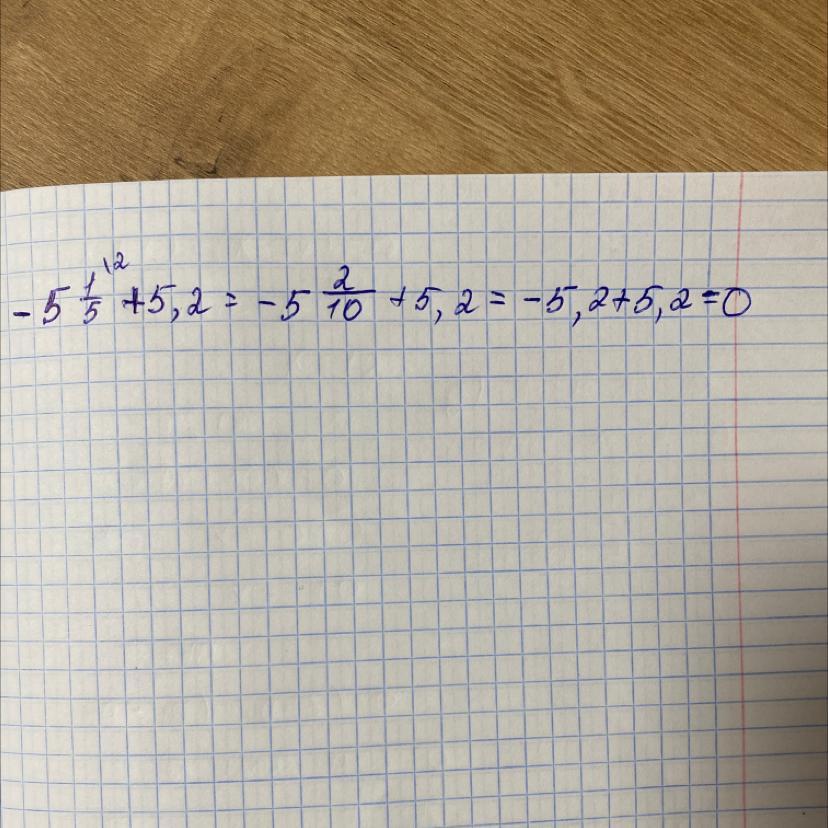 -5 1/5 \2 + 5,2 = -5 2/10 + 5,2 = -5,2+5,2=0